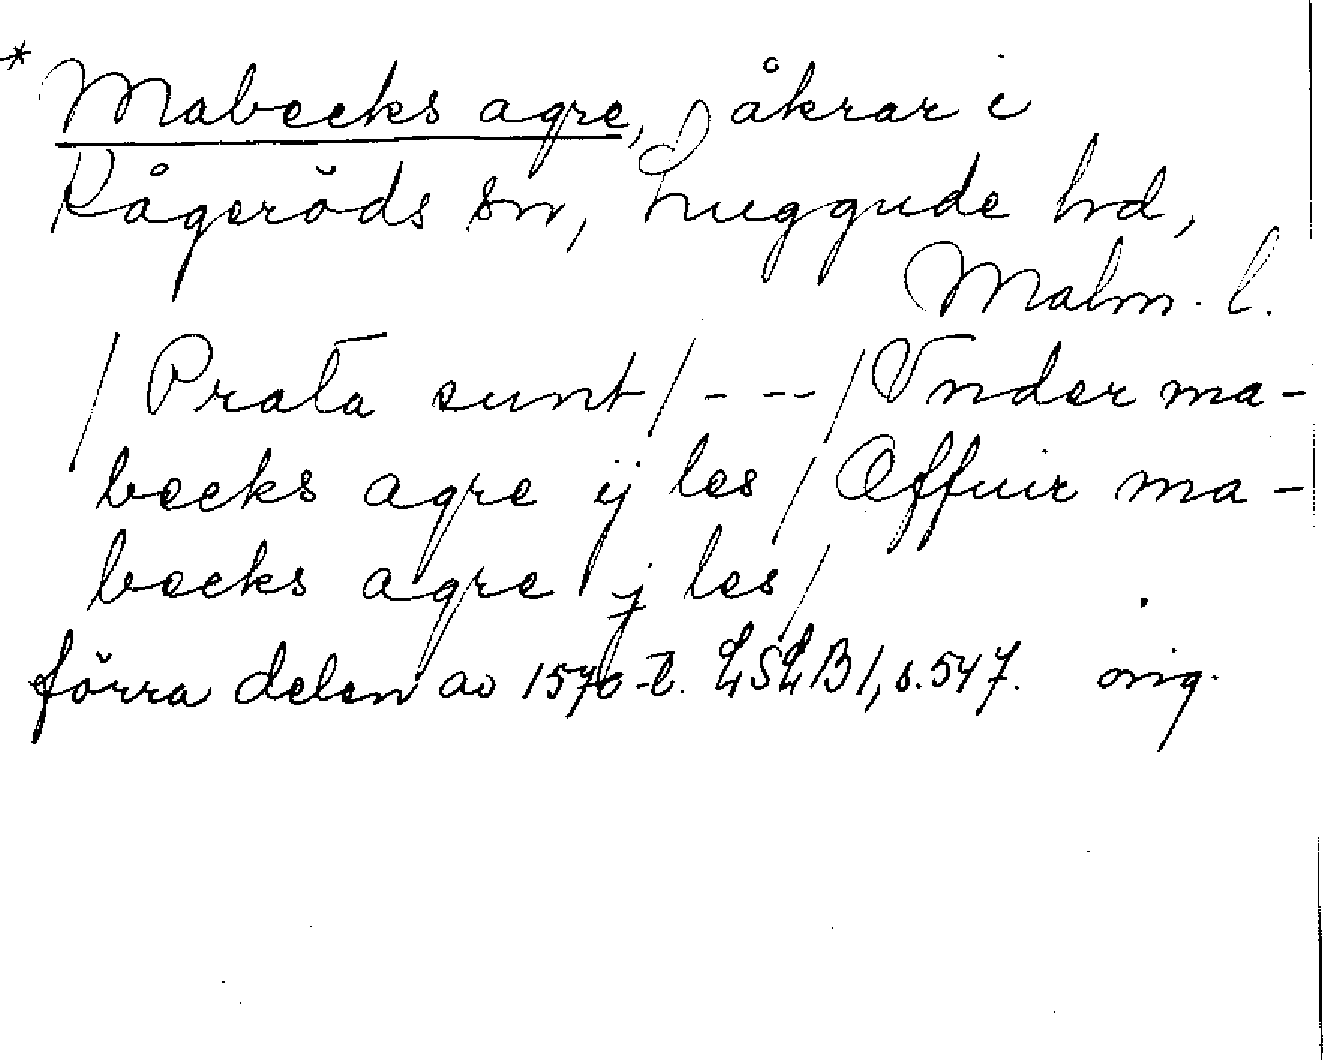 * Mabecks agre, åkrar i
Rågeröds sn, Luggude hd,
Malm. l.
/ Prata sunt / - - - / Vnder ma-
becks agre ij les / Offuir ma-
becks agre j les /
förra delen av 1570-t. LSLB 1, s. 547. orig.